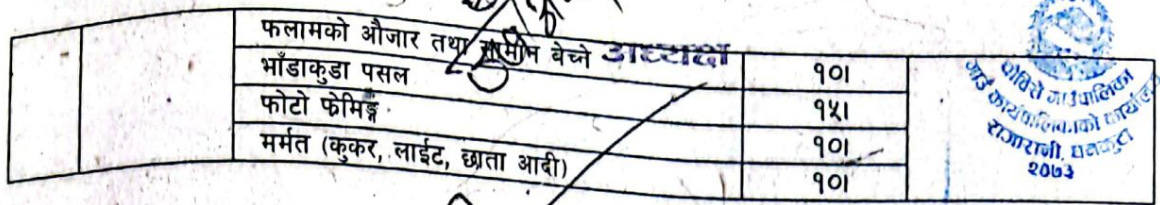 फलामको औजार तथा सामान बेच्ने
अध्यक्ष
१०।
भाँडाकुडा पसल
१५।
फोटो फ्रेमिङ्ग
१०।
मर्मत (कुकर, लाईट, छाता आदी)
१०।
चौविसे गाउँपालिका
गाउँ कार्यपालिकाको कार्यालय
राजारानी, धनकुटा
२०७३